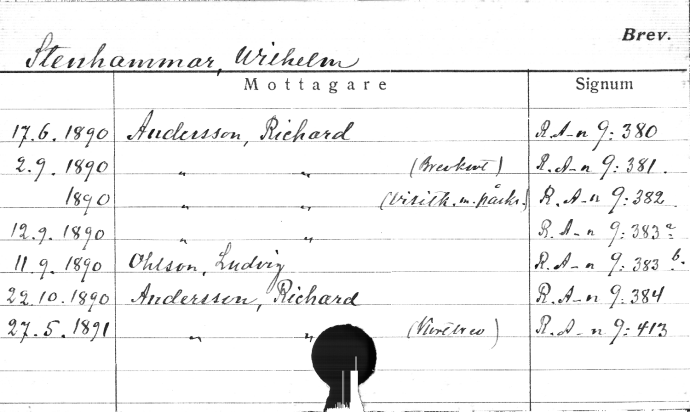 Brev.
Stenhammar, Wilhelm
Mottagare Signum
17.6.1890 Andersson, Richard R. A-n 9:380
2.9.1890 „ „ (Brevkort) R. A-n 9:381.
1890 „ „ (Visitk. m. påskr.) R. A-n 9:382
12.9.1890 „ „ R. A-n 9:383a
11.9.1890 Ohlson, Ludvig R. A-n 9:383 b.
22.10.1890 Andersson, Richard R. A-n 9:384
27.5.1891 „ „ R. A-n 9:413